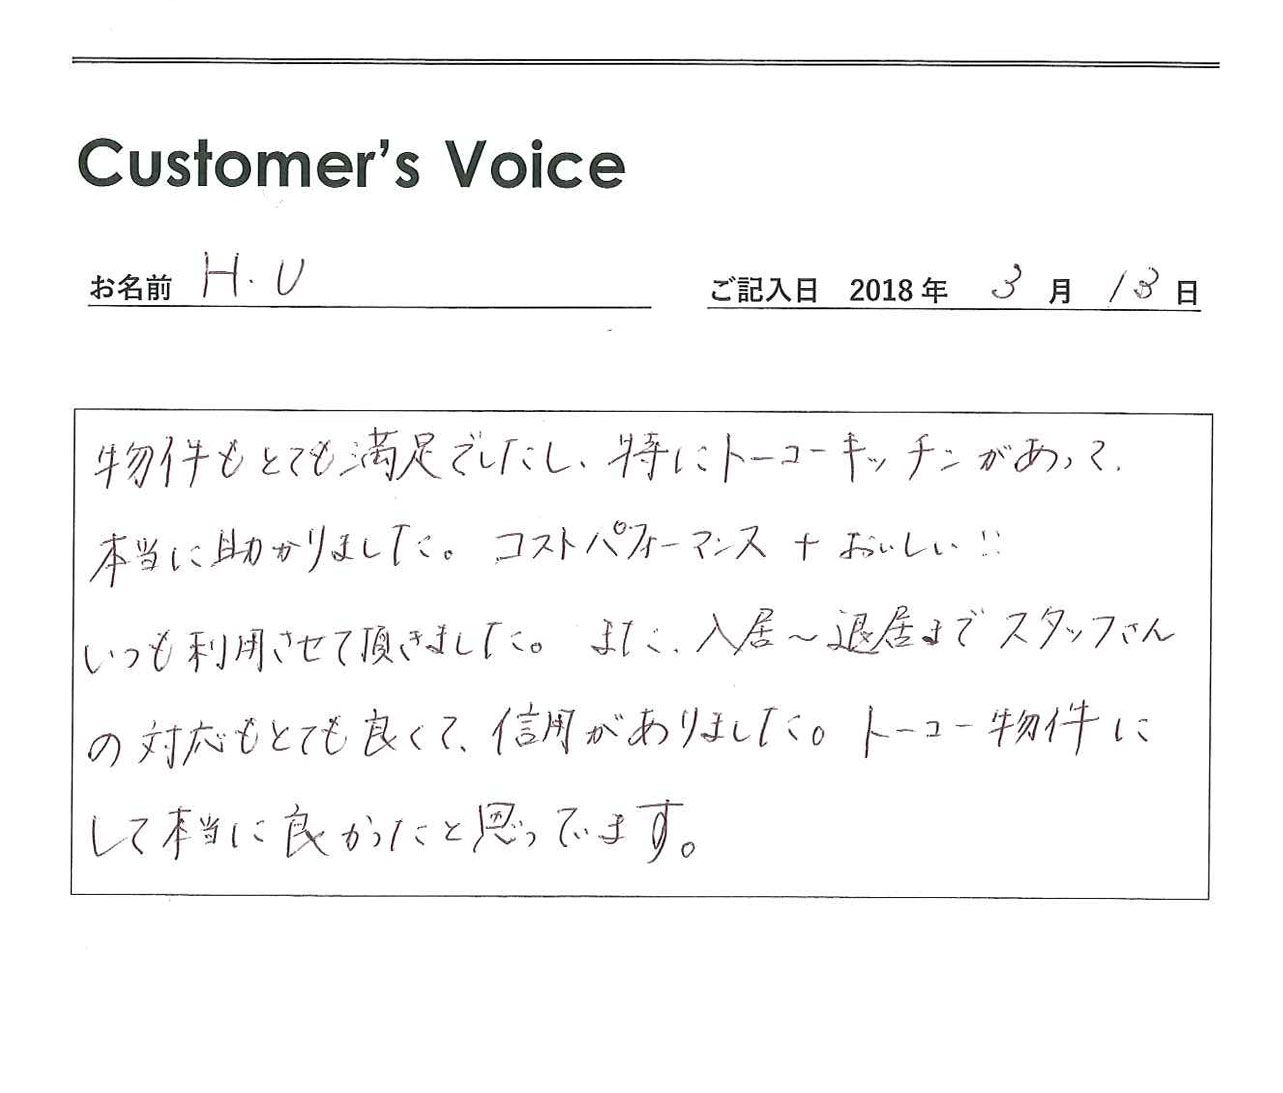 Customer's Voice
お名前 H.U
ご記入日 2018年 3月 13日
物件もとても満足でしたし、特にトーコーキッチンがあって、
本当に助かりました。コストパフォーマンス + おいしい!!
いつも利用させて頂きました。また、入居～退居までスタッフさん
の対応もとても良くて、信用がありました。トーコー物件に
して本当に良かったと思っています。